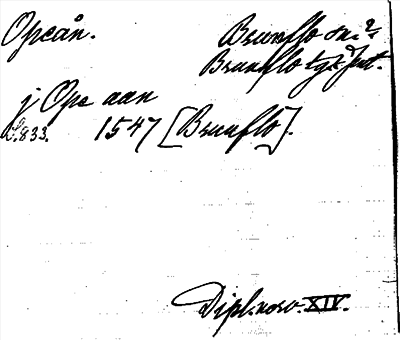 Opeån.
Brunflo sn.?
Brunflo tgs Jmt.
j Ope aan
S.833. 1547 [Brunflo].
Dipl. norv. XIV.